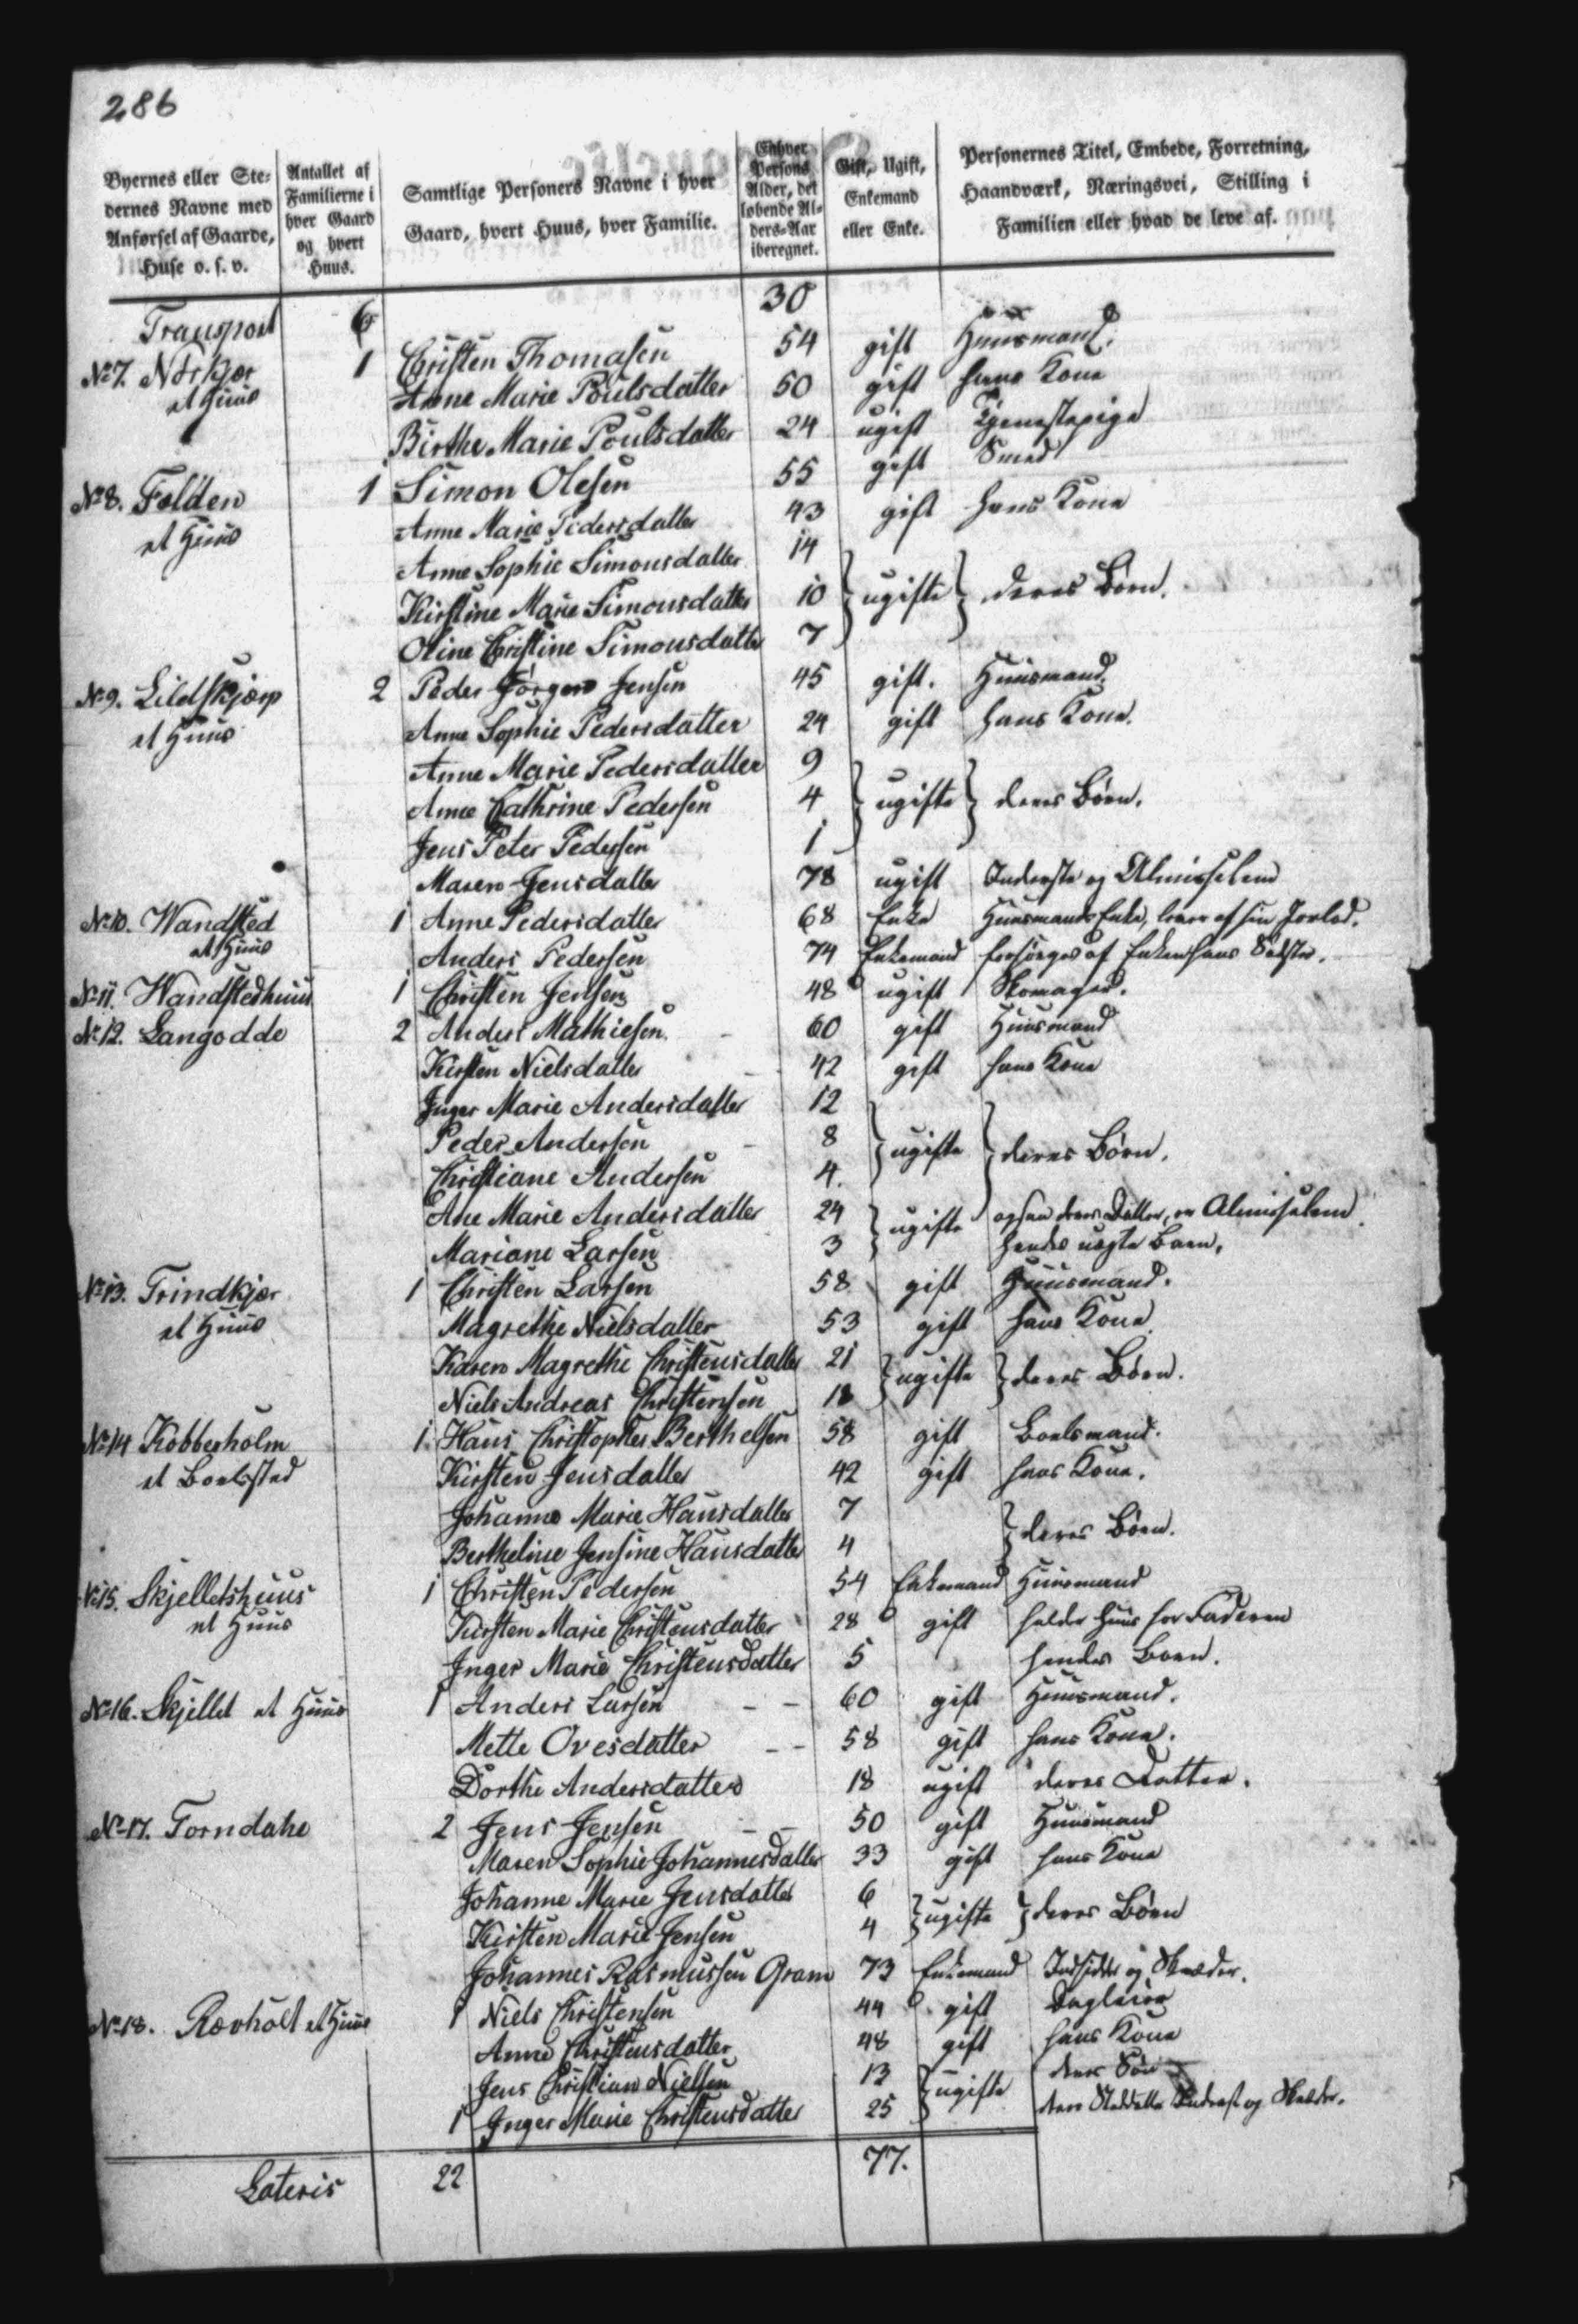 286
Byernes eller Ste- dernes Navne med Anførsel af Gaarde, Huse o. s. v.
Antallet af Familierne i hver Gaard og hvert Huus.
Samtlige Personers Navne i hver Gaard, hvert Huus, hver Familie.
Enhver Persons Alder, det løbende Al- ders-Aar iberegnet.
Gift, Ugift, Enkemand eller Enke.
Personernes Titel, Embede, Forretning, Haandværk, Næringsvei, Stilling i Familien eller hvad de leve af.
Transport 6 30
No 7. Nørkjær 1 Christen Thomasen 54 gift Huusmand.
et Huus Anne Marie Poulsdatter 50 gift hans Kone
Birthe Marie Poulsdatter 24 ugift Tjenestepige
No 8. Felden 1 Simon Olesen 55 gift Smed
et Huus Anne Marie Pedersdatter 43 gift hans Kone
Anne Sophie Simonsdatter 14
Kirstine Marie Simonsdatter 10 ugifte deres Børn.
Oline Christine Simonsdatter 7
No 9. Lildskjærp 2 Peder Jørgen Jensen 45 gift. Huusmand.
et Huus Anne Sophie Pedersdatter 24 gift hans Kone.
Anne Marie Pedersdatter 9
Anne Cathrine Pedersen 4 ugifte deres Børn.
Jens Peter Pedersen 1
Maren Jensdatter 78 ugift Inderste og Almisselem
No 10. Wandsted 1 Anne Pedersdatter 68 Enke Huusmands Enke, lever af sin Jordlod.
et Huus Anders Pedersen 74 Enkemand forsørges af Enken hans Søster.
No 11. Wandstedhuus 1 Christen Jensen 48 ugift Skomager.
No 12. Langodde 2 Anders Mathiesen 60 gift Huusmand
Kirsten Nielsdatter 42 gift hans Kone
Inger Marie Andersdatter 12
Peder Andersen 8 ugifte deres Børn.
Christiane Andersen 4.
Ane Marie Andersdatter 24 ugifte ogsaa deres Datter, er Almisselem
Mariane Larsen 3 hendes uægte Barn.
No 13. Trindkjær 1 Christen Larsen 58 gift Huusmand.
et Huus Magrethe Nielsdatter 53 gift hans Kone
Karen Magrethe Christensdatter 21 ugifte deres Børn.
Niels Andreas Christensen 18
No 14 Kobberholm 1. Hans Christopher Berthelsen 58 gift Boelsmand.
et Boelssted Kirsten Jensdatter 42 gift hans Kone.
Johanne Marie Hansdatter 7 deres Børn.
Bertheline Jensine Hansdatter 4
No 15. Skjelletshuus 1 Christen Pedersen 54 Enkemand Huusmand
et Huus Kirsten Marie Christensdatter 28 gift holder Huus for Faderen
Inger Marie Christensdatter 5 hendes Barn.
No 16. Skjellet et Huus 1 Anders Larsen 60 gift Huusmand.
Mette Ovesdatter 58 gift hans Kone.
Dorthe Andersdatter 18 ugift deres Datter.
No 17. Torndahe 2 Jens Jensen 50 gift Huusmand
Maren Sophie Johannesdatter 33 gift hans Kone
Johanne Marie Jensdatter 6 ugifte deres Børn
Kirsten Marie Jensen 4
Johannes Rasmussen Gram 73 Enkemand Indsidder og Skræder.
No 18. Rævholt et Huus 1 Niels Christensen 44 gift Dagleier
Anne Christensdatter 48 gift hans Kone
Jens Christian Nielsen 13 ugifte deres Søn
1 Inger Marie Christensdatter 25 deres Steddatter Inderst og
Lateris 22 77.